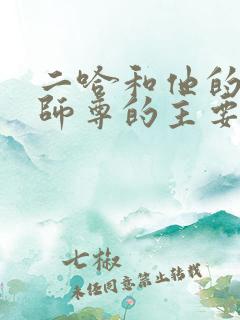 二哈和他的
師尊的主要
七椒
未经同意禁止转载